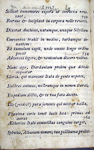 Scilicet immemores supera ut convexa revisant
Rursus & incipiant in corpora velle reverti.
Dixerat Anchises, natumque, unaque Sibyllam
Conventus trahit in medios, turbamque sonantem:
Et tumulum capit, unde omnes longo ordine possit
Adversos legere, & venientum discere vultus.
Nunc age, Dardaniam prolem quae deinde sequatur
Gloria, qui maneant Itala de gente nepotes,
Illustres animas, nostrumque in nomen ituras,
Expediam dictis, & te tua fata docebo.
Ille (vides) pura juvenis qui nititur hasta,
Proxima sorte tenet lucis loca, primus ad auras
Aetherias Italo commixtus sanguine surget,
Sylvius, Albanum nomen, tua postuma proles: